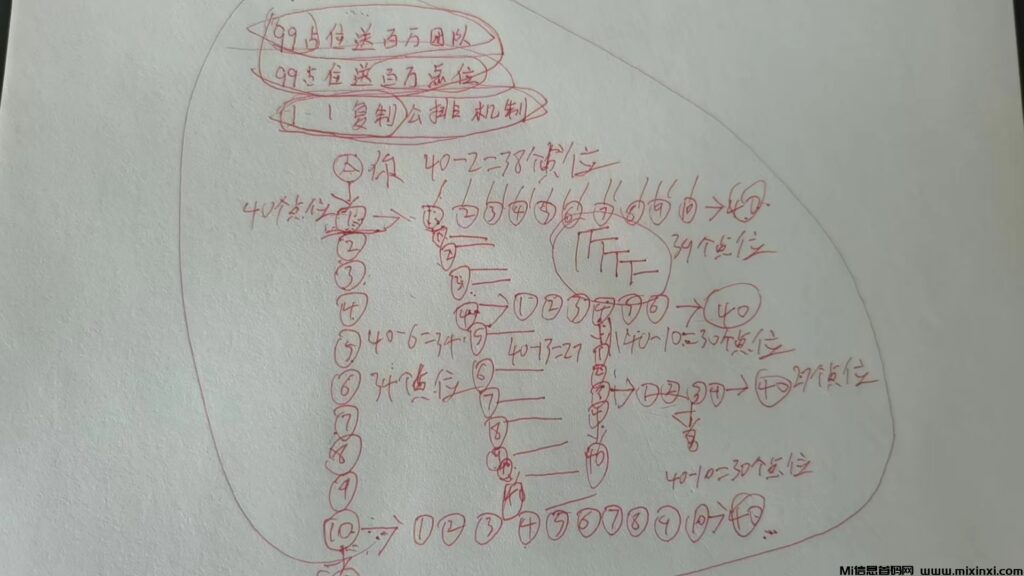 99占位送百万团队
99占位送百万点位
1-1复制公排机制
你 40-2=38个点位
40个点位 ① → ① ② ③ ④ ⑤ ⑥ ⑦ ⑧ ⑨ ⑩ → 40
② ②
39个点位
③ ③
④ ④ → ① ② ③ ④ ⑤ ⑥ → 40
⑤ 40-6=34 ⑤ 40-13=27 40-10=30个点位
⑥ 34个点位 ⑥ → ① ② ③ ④ → 40 27个点位
⑦ ⑦
⑧ ⑧ 8
⑨ ⑨ 40
40-10=30个点位
40
⑩ … → ① ② ③ ④ ⑤ ⑥ ⑦ ⑧ ⑨ ⑩ → 40 …
Mi信息首码网 www.mixinxi.com